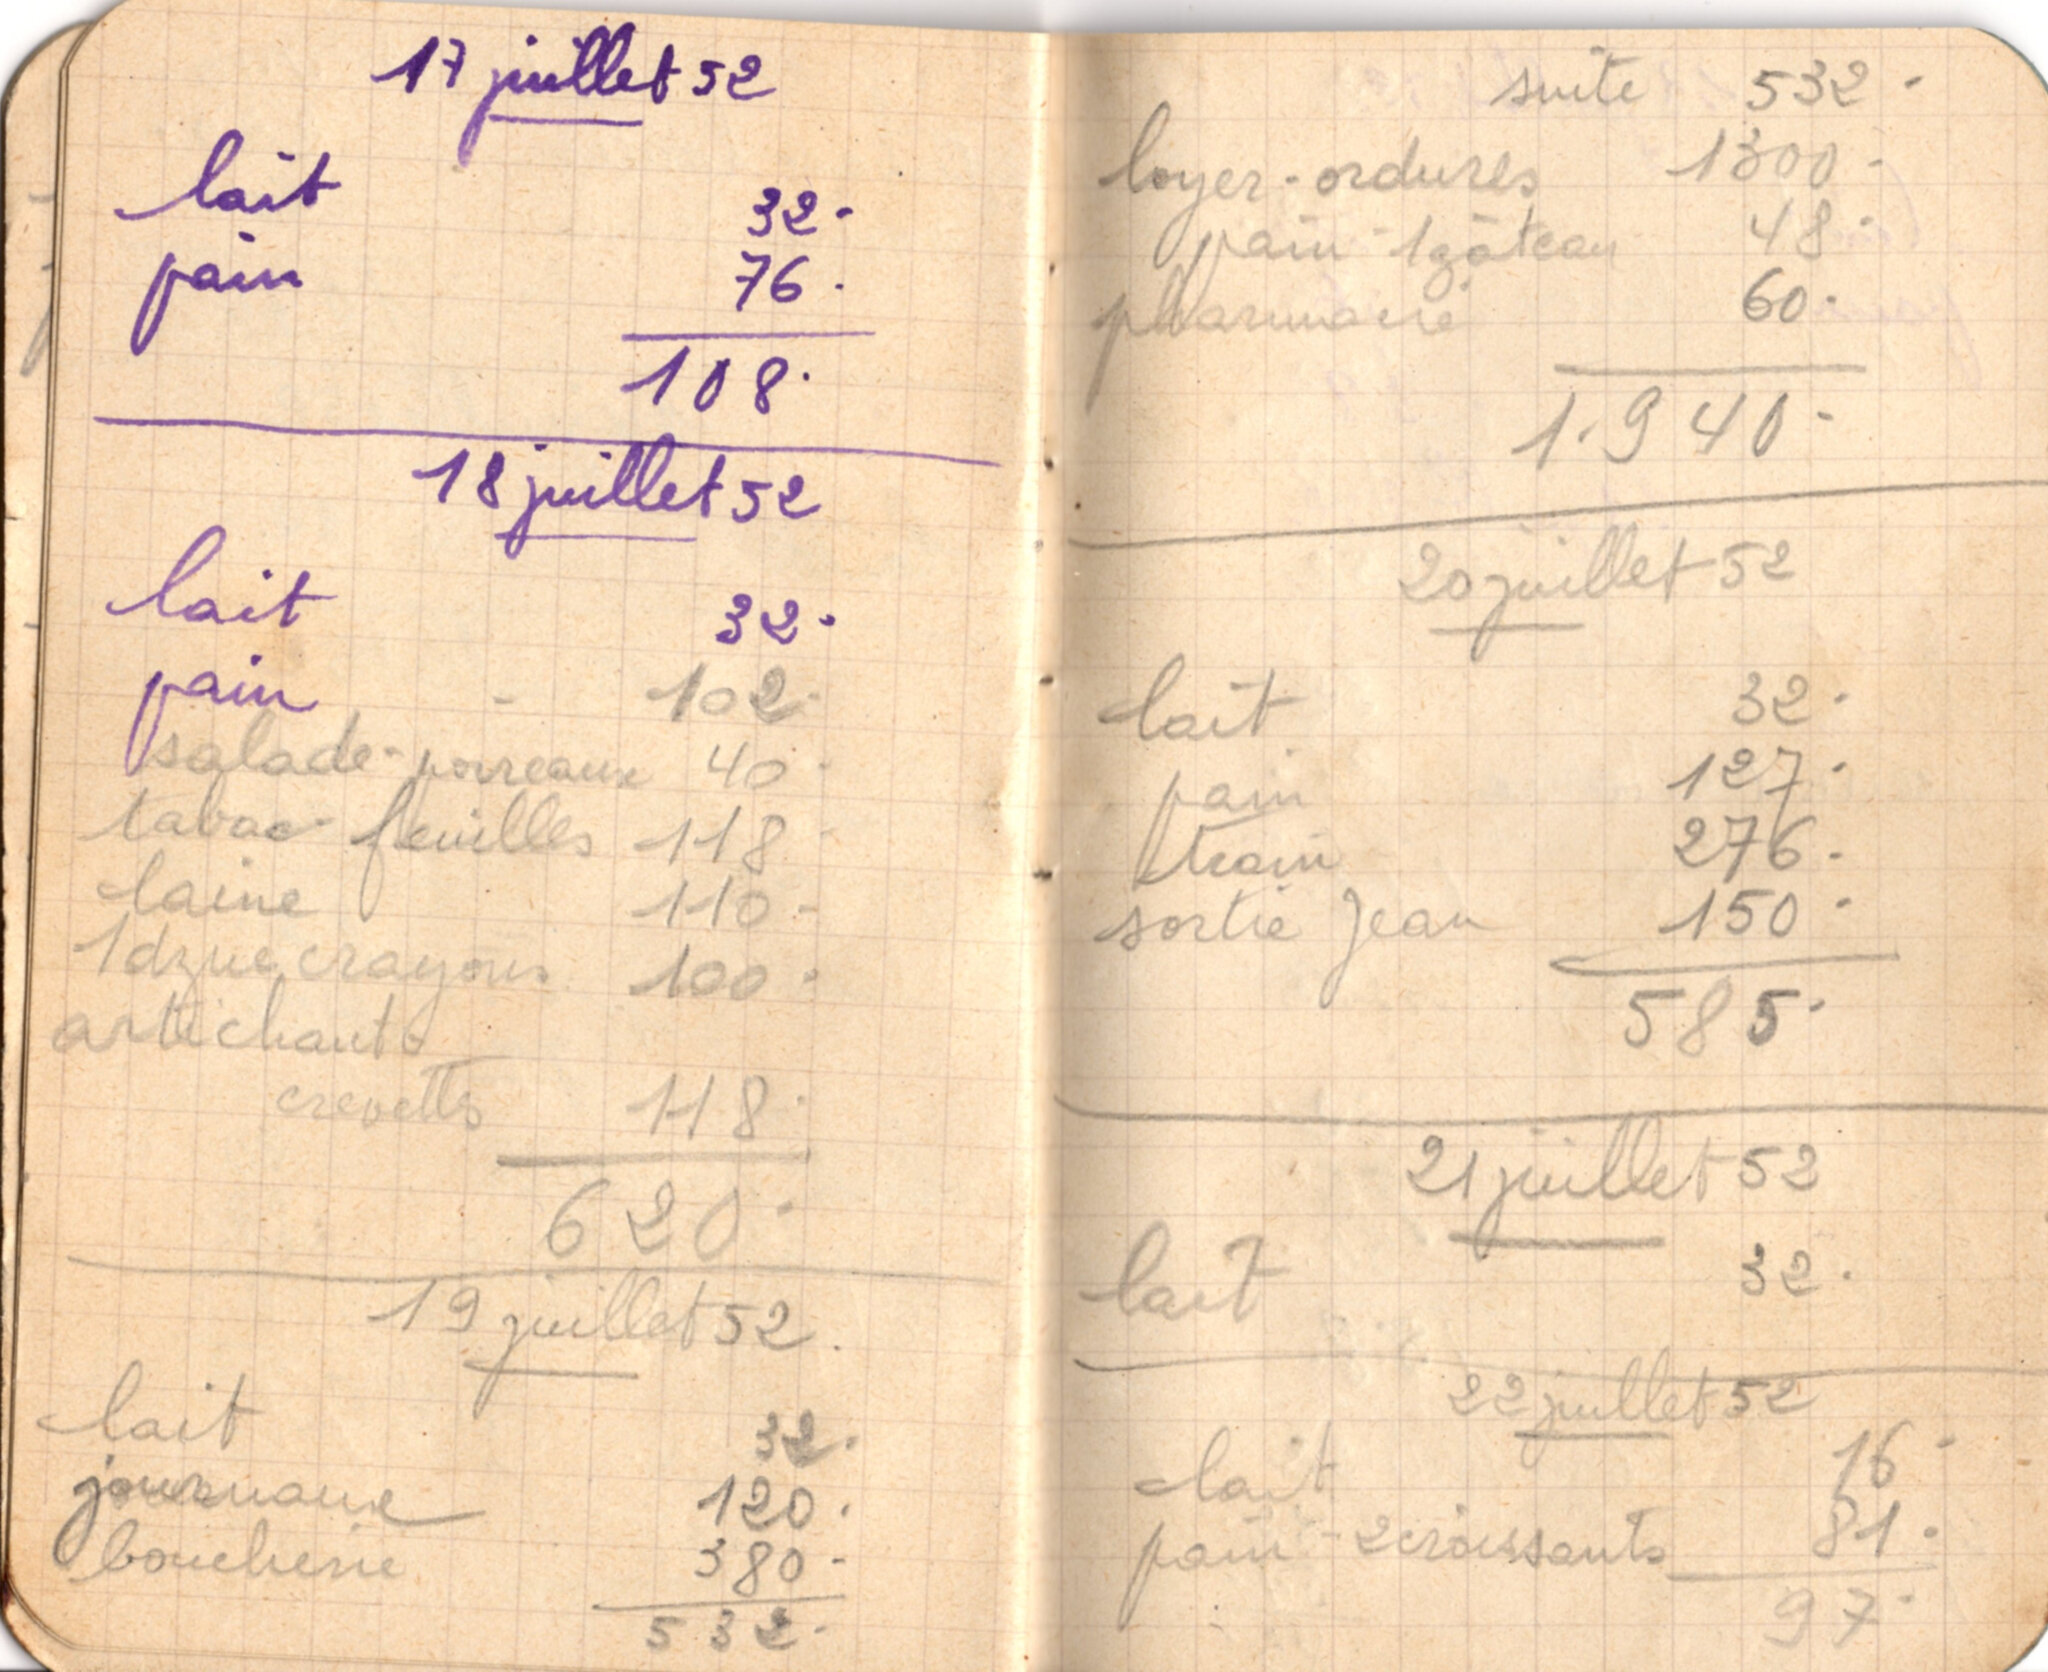 17 juillet 52
lait 32.
pain 76.
108.
18 juillet 52
lait 32.
pain - 102.
salade - poireaux 40.
tabac - feuilles 118.
laine 110.
1 dzne crayons 100.
artichauts
crevettes 118.
620.
19 juillet 52.
lait 32.
journaux 120.
boucherie 380.
532.
suite 532.
loyer - ordures 1300.
pain - 1 gâteau 48.
pharmacie 60.
1.940.
20 juillet 52
lait 32.
pain 127.
train 276.
sortie Jean 150.
585.
21 juillet 52
lait 32.
22 juillet 52
lait 16.
pain - 2 croissants 81.
97.